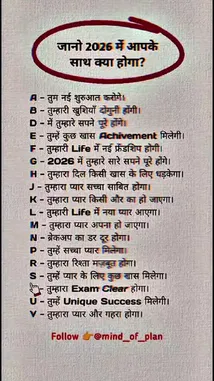 जानो 2026 में आपके
साथ क्या होगा?
A - तुम नई शुरुआत करोगे।
B - तुम्हारी खुशियाँ दोगुनी होंगी।
D - में तुम्हारे सपने पूरे होंगे।
E - तुम्हें कुछ खास Achivement मिलेगी।
F - तुम्हारी Life में नई फ्रेंडशिप होगी।
G - 2026 में तुम्हारे सारे सपने पूरे होंगे।
H - तुम्हारा दिल किसी खास के लिए धड़केगा।
J - तुम्हारा प्यार सच्चा साबित होगा।
K - तुम्हारा प्यार किसी और का हो जाएगा।
L - तुम्हारी Life में नया प्यार आएगा।
M - तुम्हारा प्यार अपना हो जाएगा।
N - ब्रेकअप का डर दूर होगा।
P - तुम्हें सच्चा प्यार मिलेगा।
R - तुम्हारा रिश्ता मजबूत होगा।
S - तुम्हें प्यार के लिए कुछ खास मिलेगा।
तुम्हारा Exam Clear होगा।
U - तुम्हें Unique Success मिलेगी।
V - तुम्हारा प्यार और गहरा होगा।
Follow 👉@mind_of_plan